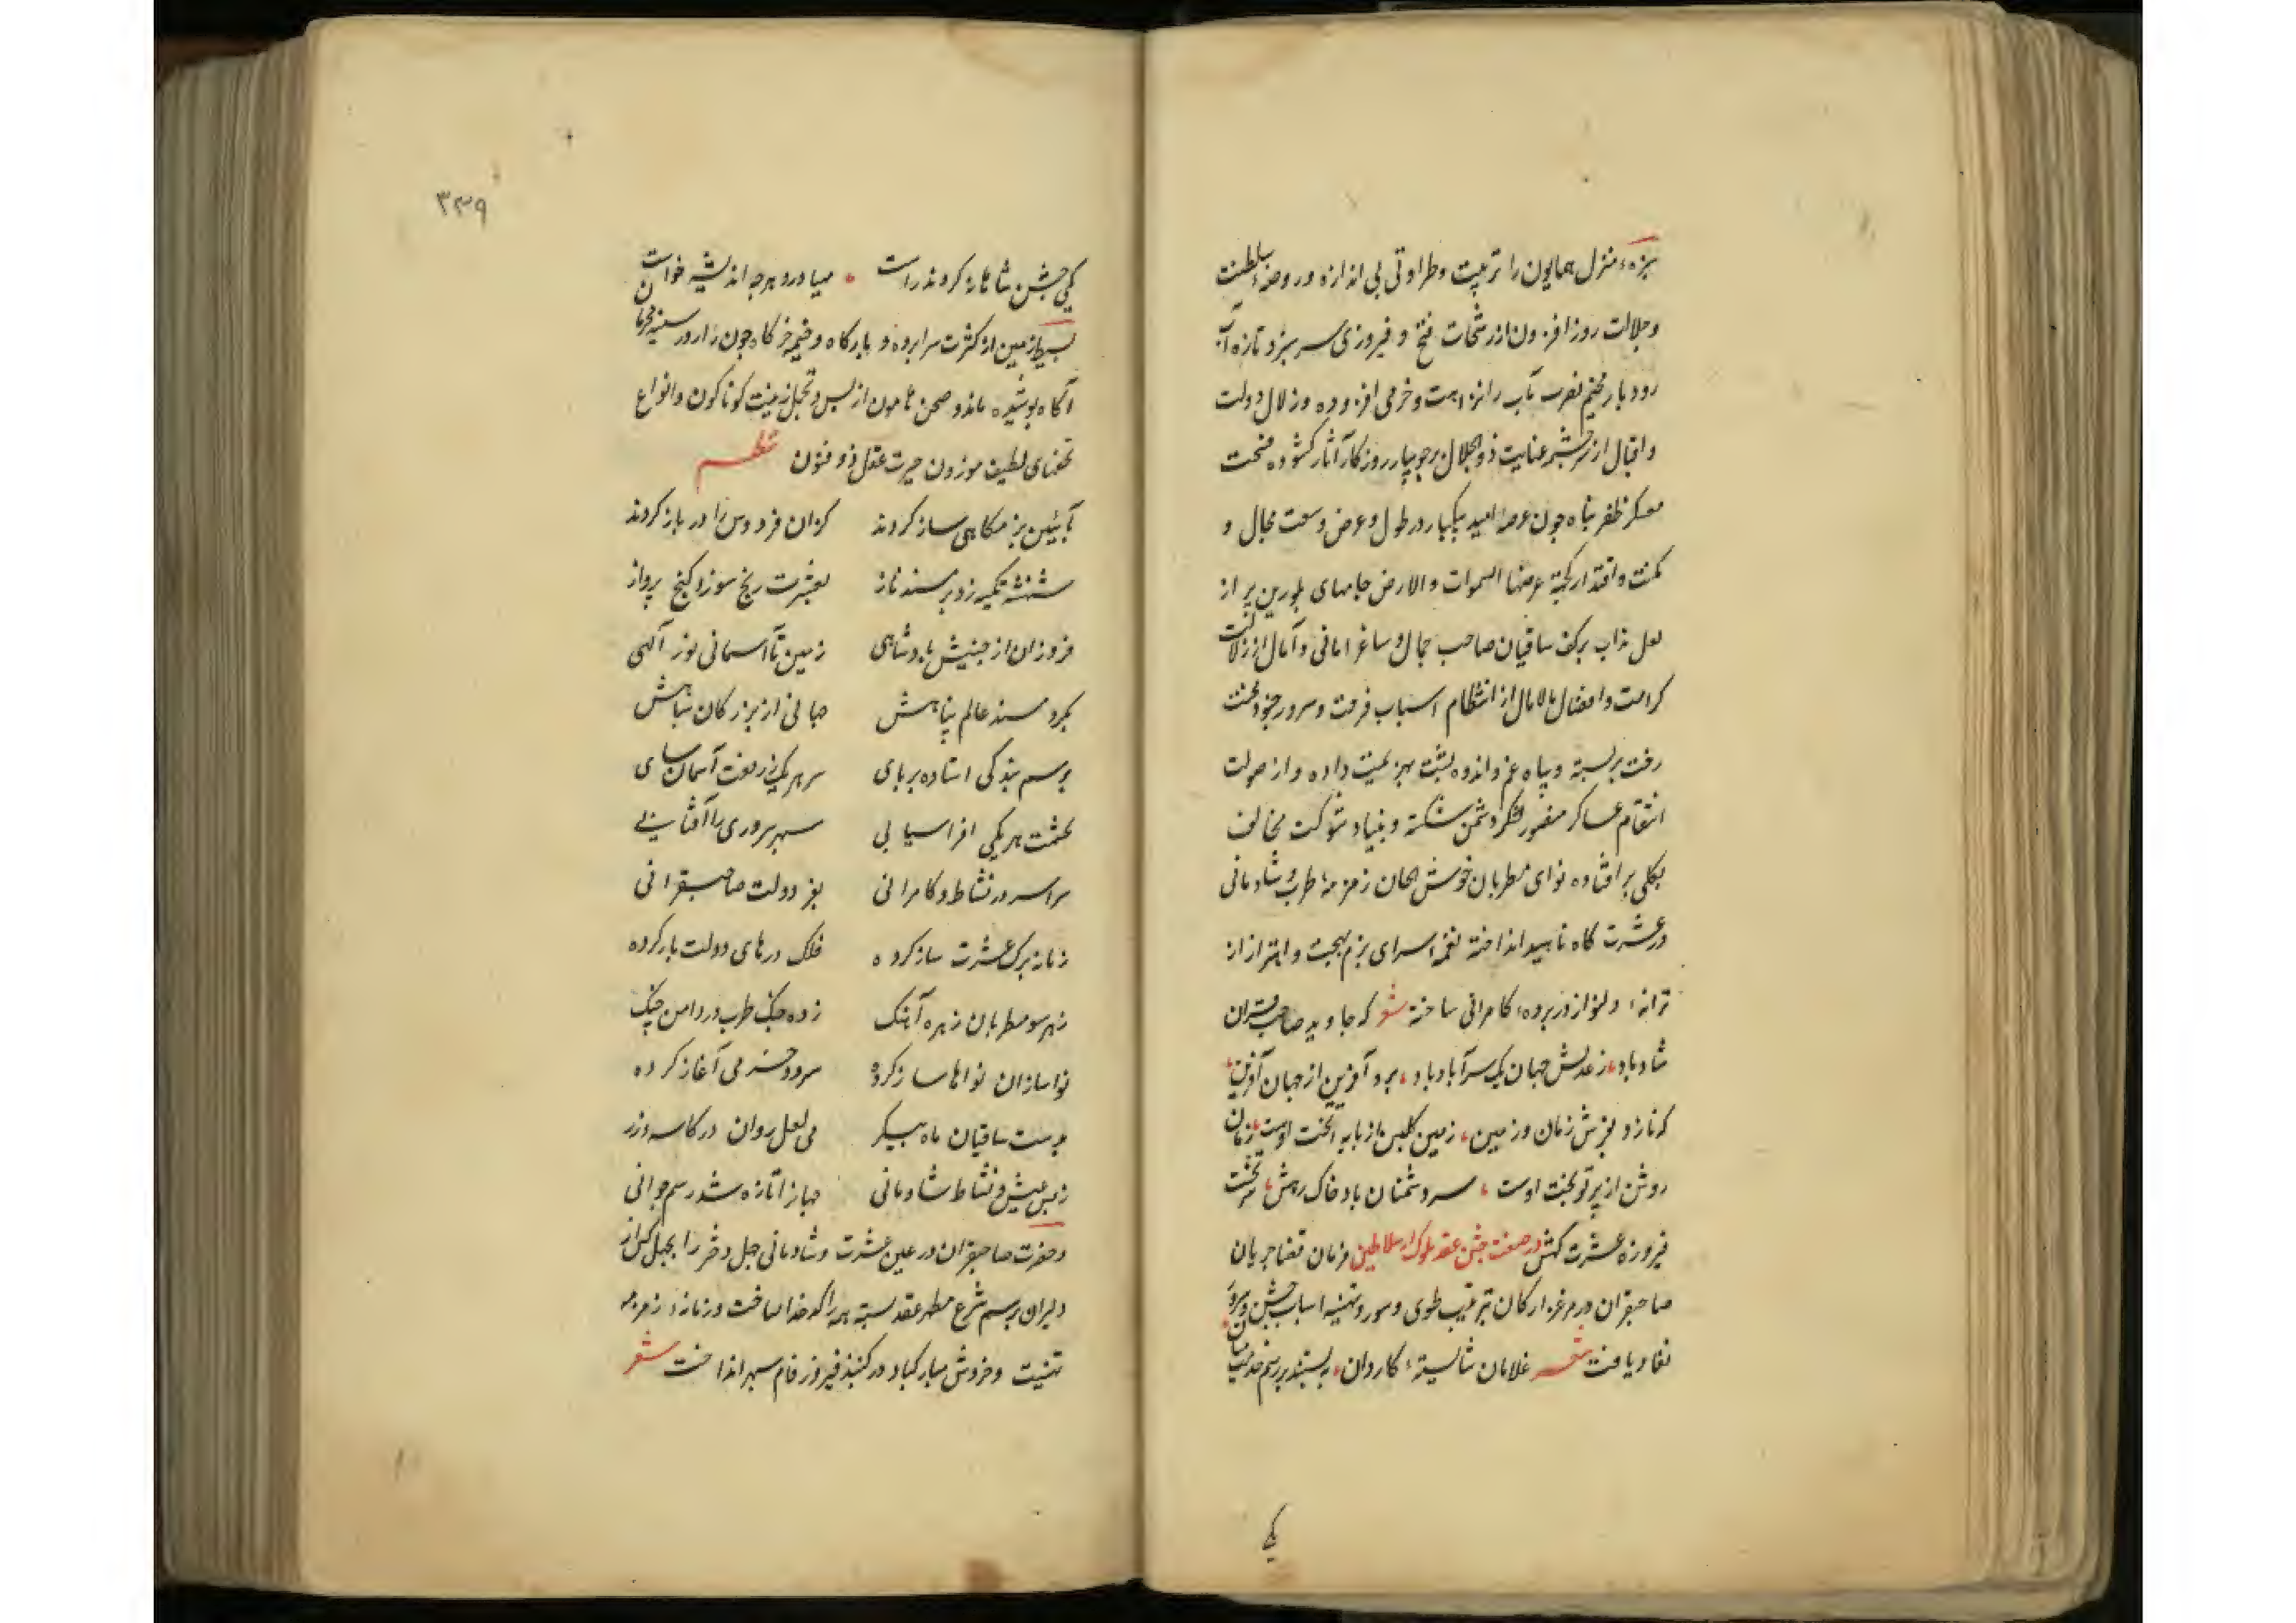 سبزهٔ منزل همایون را تربیت و طراوتی بی اندازه و روضهٔ سلطنت
و جلالت روز افزون از رشحات فتح و فیروزی سرسبز و تازه آب
رودبار مخیم نصرت مآب را نزاهت و خرمی افزوده و زلال دولت
و اقبال از سرچشمه عنایت ذوالجلال بر جویبار روزکار آثار کشوده فسحت
معسکر ظفر پناه چون عرصه امید یکبار در طول و عرض وسعت مجال و
مکنت و اقتدار کجنة عرضها السموات والارض جامهای بلورین پر از
لعل مذاب بر کف ساقیان صاحب جمال و ساغر امانی و آمال از زلال
کرامت و افضال مالامال از انتظام اسباب فرحت و سرور جنود محنت
رخت بر بسته و سپاه غم و اندوه پشت بهزیمت داده و از صولت
انتقام عساکر منصور لشکر دشمن شکسته و بنیاد شوکت مخالف
بکلی بر افتاده نوای مطربان خوش الحان زمزمهٔ طرب و شادمانی
در عشرت کاه ناهید انداخته نغمه سرای بزم بهجت و اهتزاز از
ترانهٔ دلنواز در پردهٔ کامرانی ساخته شعر که جاوید صاحب قران
شاد باد زعدلش جهان یک سر آباد باد برو آفرین از جهان آفرین
که نازد بفرش زمان و زمین زمین کلبس از پایه تخت اوست زمان
روشن از پرتو بخت اوست سر دشمنان باد خاک رهش سر تخت
فیروزه عشرت کهش در صفت جشن عقد ملوک از سلاطین فرمان قضا جریان
صاحبقران در مرغزار کان بترتیب طوی و سور و تهنیه اسباب جشن و سرور
نفاد یافت شعر غلامان شایستهٔ کاردان ببستند بر رسم خدمت میان
یکی
۳۳۹
یکی جشن شاهانه کردند راست مهیا درو هرچه اندیشه خواست
بسیط زمین از کثرت سراپرده و بارکاه و خیمه و خرکاه چون راز در سینه محرمان
آکاه پوشیده ماند و صحن هامون از بس تجمل زینت کوناکون و انواع
تحفهای لطیف موزون حیرت عقل ذو فنون نظم
بآئین بزمکاهی ساز کردند کزان فردوس را در باز کردند
شهنشه تکیه زد بر مسند ناز بعشرت رنج سوز و کنج پرداز
فروزان از جبینش پادشاهی زمین تا آسمانی نور آلهی
بکرد مسند عالم پناهش جهانی از بزرکان سپاهش
برسم بندکی استاده بر پای سر هر یک ز رفعت آسمان سای
بحشمت هر یکی افراسیابی سپهر سروری را آفتابی
سراسر در نشاط و کامرانی بفر دولت صاحبقرانی
زمانه برک عشرت ساز کرده فلک درهای دولت باز کرده
ز هر سو مطربان زهره آهنک زده چنک طرب در دامن چنک
نواسازان نواها ساز کرده سرود خرمی آغاز کرده
بدست ساقیان ماه پیکر می لعل روان در کاسه زر
ز بس عیش و نشاط شادمانی جهانرا تازه شد رسم جوانی
و حضرت صاحبقران در عین عشرت و شادمانی چهل دختر را بچهل کس از
دلیران برسم شرع مطهر عقد بسته همه را کدخدا ساخت و زمانه زمزمه
تهنیت و خروش مبارکباد در کنبد فیروزه فام سپهر انداخت شعر